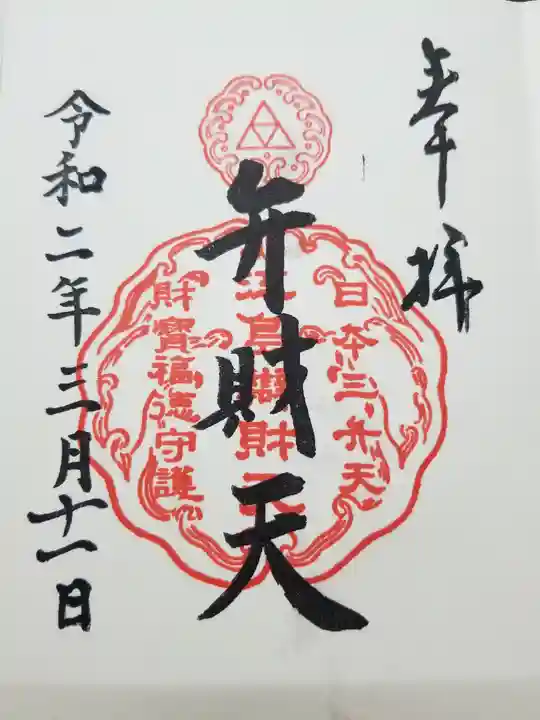 奉拝
日本三弁天
江島辨財天
財寶福徳守護
弁財天
令和二年三月十一日